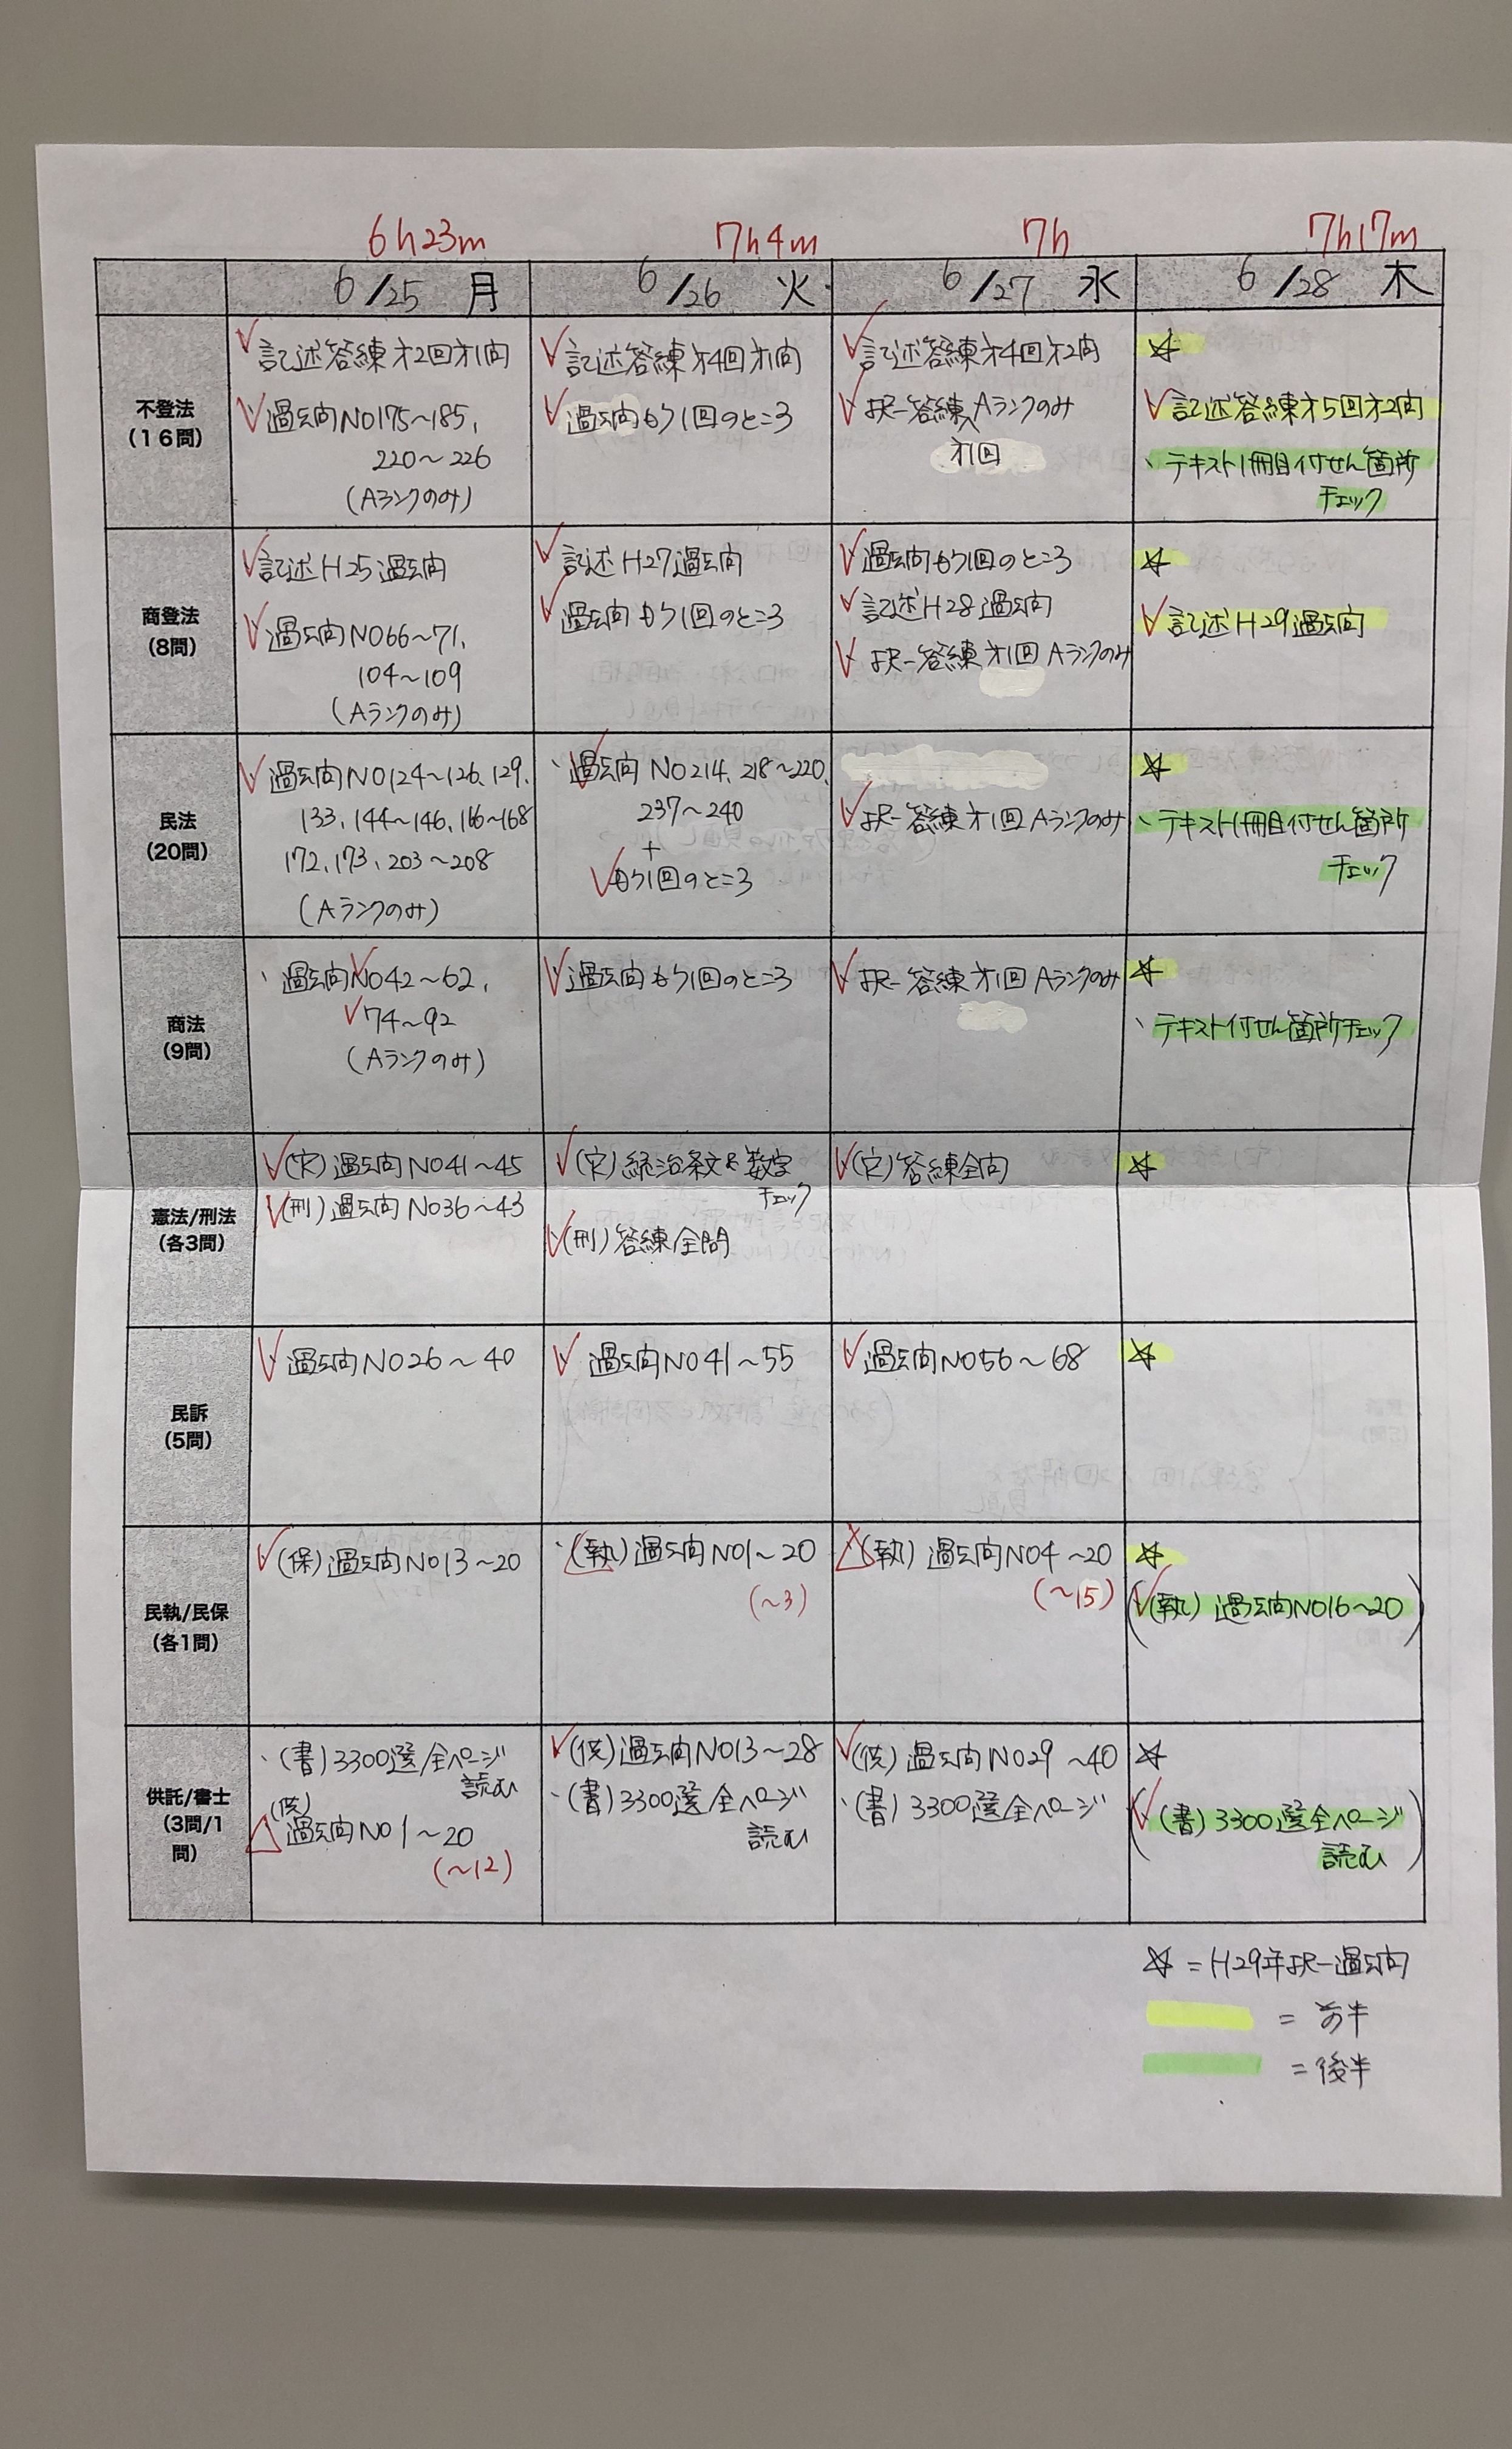 6h23m 7h4m 7h 7h17m
6/25 月 6/26 火 6/27 水 6/28 木
不登法
(16問)
記述答練オ2回オ1問
過去問NO175～185、
220～226
(Aランクのみ)
記述答練オ4回オ1問
過去問もう1回のところ
記述答練オ4回オ2問
択一答練Aランクのみ
オ1回
☆
記述答練オ5回オ2問
テキスト1冊目付せん箇所
チェック
商登法
(8問)
記述H25過去問
過去問NO66～71、
104～109
(Aランクのみ)
記述H27過去問
過去問もう1回のところ
過去問もう1回のところ
記述H28過去問
択一答練オ1回Aランクのみ
☆
記述H29過去問
民法
(20問)
過去問NO124～126、129、
133、144～146、166～168
172、173、203～208
(Aランクのみ)
過去問NO214、218～220、
237～240
+
もう1回のところ
択一答練オ1回Aランクのみ
☆
テキスト1冊目付せん箇所
チェック
商法
(9問)
過去問NO42～62、
74～92
(Aランクのみ)
過去問もう1回のところ
択一答練オ1回Aランクのみ
☆
テキスト付せん箇所チェック
憲法/刑法
(各3問)
(宍)過去問NO41～45
(刑)過去問NO36～43
(宍)統治条文&数字
チェック
(刑)答練全問
(宍)答練全問
☆
民訴
(5問)
過去問NO26～40
過去問NO41～55
過去問NO56～68
☆
民執/民保
(各1問)
(保)過去問NO13～20
(執)過去問NO1～20
(～3)
(執)過去問NO4～20
(～15)
☆
(執)過去問NO16～20
供託/書士
(3問/1
問)
(書)3300選全ページ
読む
(供)
過去問NO1～20
(～12)
(供)過去問NO13～28
(書)3300選全ページ
読む
(供)過去問NO29～40
(書)3300選全ページ
☆
(書)3300選全ページ
読む
☆=H29年択一過去問
=前半
=後半